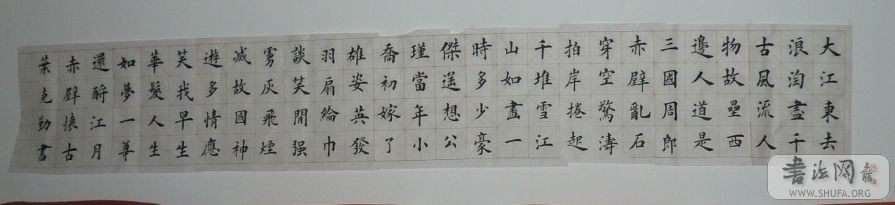 大江東去
浪淘盡千
古風流人
物故壘西
邊人道是
三國周郎
赤壁亂石
穿空驚濤
拍岸捲起
千堆雪江
山如畫一
時多少豪
傑遥想公
瑾當年小
喬初嫁了
雄姿英發
羽扇綸巾
談笑間强
虜灰飛煙
滅故國神
遊多情應
笑我早生
華髮人生
如夢一尊
還酹江月
赤壁懷古
葉克勤書
書法网
WWW.SHUFA.ORG